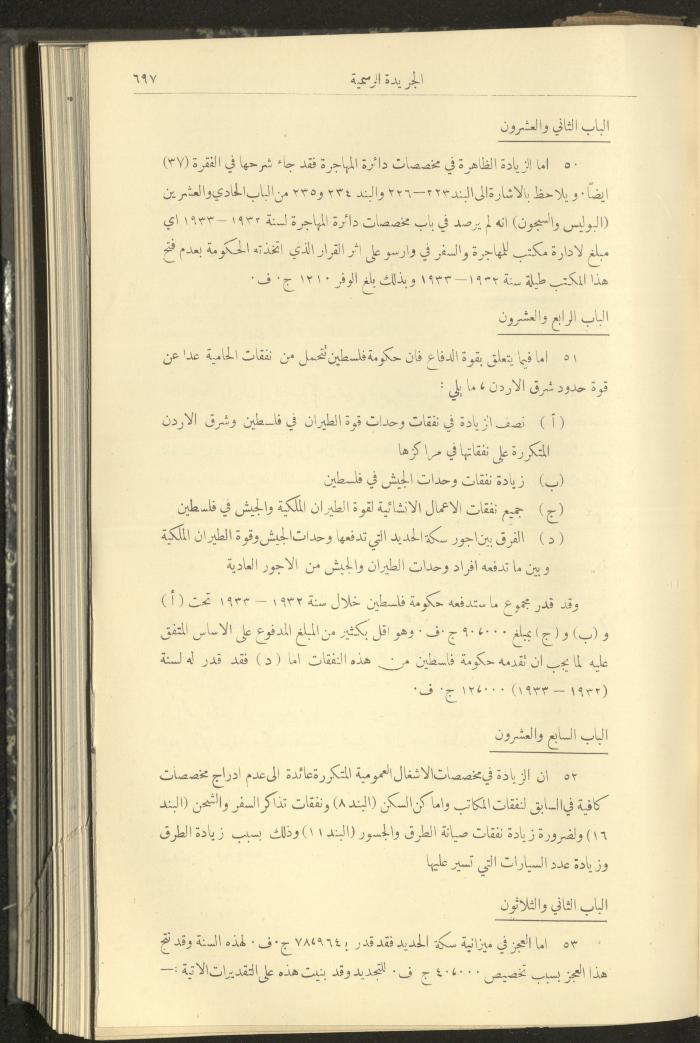 الجريدة الرسمية ٦٩٧
الباب الثاني والعشرون
٥٠ اما الزيادة الظاهرة في مخصصات دائرة المهاجرة فقد جاء شرحها في الفقرة (٣٧)
ايضاً. ويلاحظ بالاشارة الى البند ٢٢٣—٢٢٦ والبند ٢٣٤ و٢٣٥ من الباب الحادي والعشرين
(البوليس والسجون) انه لم يرصد في باب مخصصات دائرة المهاجرة لسنة ١٩٣٢—١٩٣٣ اي
مبلغ لادارة مكتب للمهاجرة والسفر في وارسو على اثر القرار الذي اتخذته الحكومة بعدم فتح
هذا المكتب طيلة سنة ١٩٣٢—١٩٣٣ وبذلك بلغ الوفر ١٢١٠ ج. ف.
الباب الرابع والعشرون
٥١ اما فيما يتعلق بقوة الدفاع فان حكومة فلسطين تتحمل من نفقات الحامية عدا عن
قوة حدود شرق الاردن، ما يلي :
(أ) نصف الزيادة في نفقات وحدات قوة الطيران في فلسطين وشرق الاردن
المتكررة على نفقاتها في مراكزها
(ب) زيادة نفقات وحدات الجيش في فلسطين
(ج) جميع نفقات الاعمال الانشائية لقوة الطيران الملكية والجيش في فلسطين
(د) الفرق بين اجور سكة الحديد التي تدفعها وحدات الجيش وقوة الطيران الملكية
وبين ما تدفعه افراد وحدات الطيران والجيش من الاجور العادية
وقد قدر مجموع ما ستدفعه حكومة فلسطين خلال سنة ١٩٣٢ — ١٩٣٣ تحت (أ)
و (ب) و (ج) بمبلغ ٩٠٬٠٠٠ ج. ف. وهو اقل بكثير من المبلغ المدفوع على الاساس المتفق
عليه لما يجب ان تقدمه حكومة فلسطين من هذه النفقات اما (د) فقد قدر له لسنة
(١٩٣٢ — ١٩٣٣) ١٢٬٠٠٠ ج. ف.
الباب السابع والعشرون
٥٢ ان الزيادة في مخصصات الاشغال العمومية المتكررة عائدة الى عدم ادراج مخصصات
كافية في السابق لنفقات المكاتب واماكن السكن (البند ٨) ونفقات تذاكر السفر والشحن (البند
١٦) ولضرورة زيادة نفقات صيانة الطرق والجسور (البند ١١) وذلك بسبب زيادة الطرق
وزيادة عدد السيارات التي تسير عليها
الباب الثاني والثلاثون
٥٣ اما العجز في ميزانية سكة الحديد فقد قدر بـ ٧٨٬٩٦٤ ج. ف. لهذه السنة وقد نتج
هذا العجز بسبب تخصيص ٤٠٬٠٠٠ ج ف. للتجديد وقد بنيت هذه على التقديرات الاتية :—